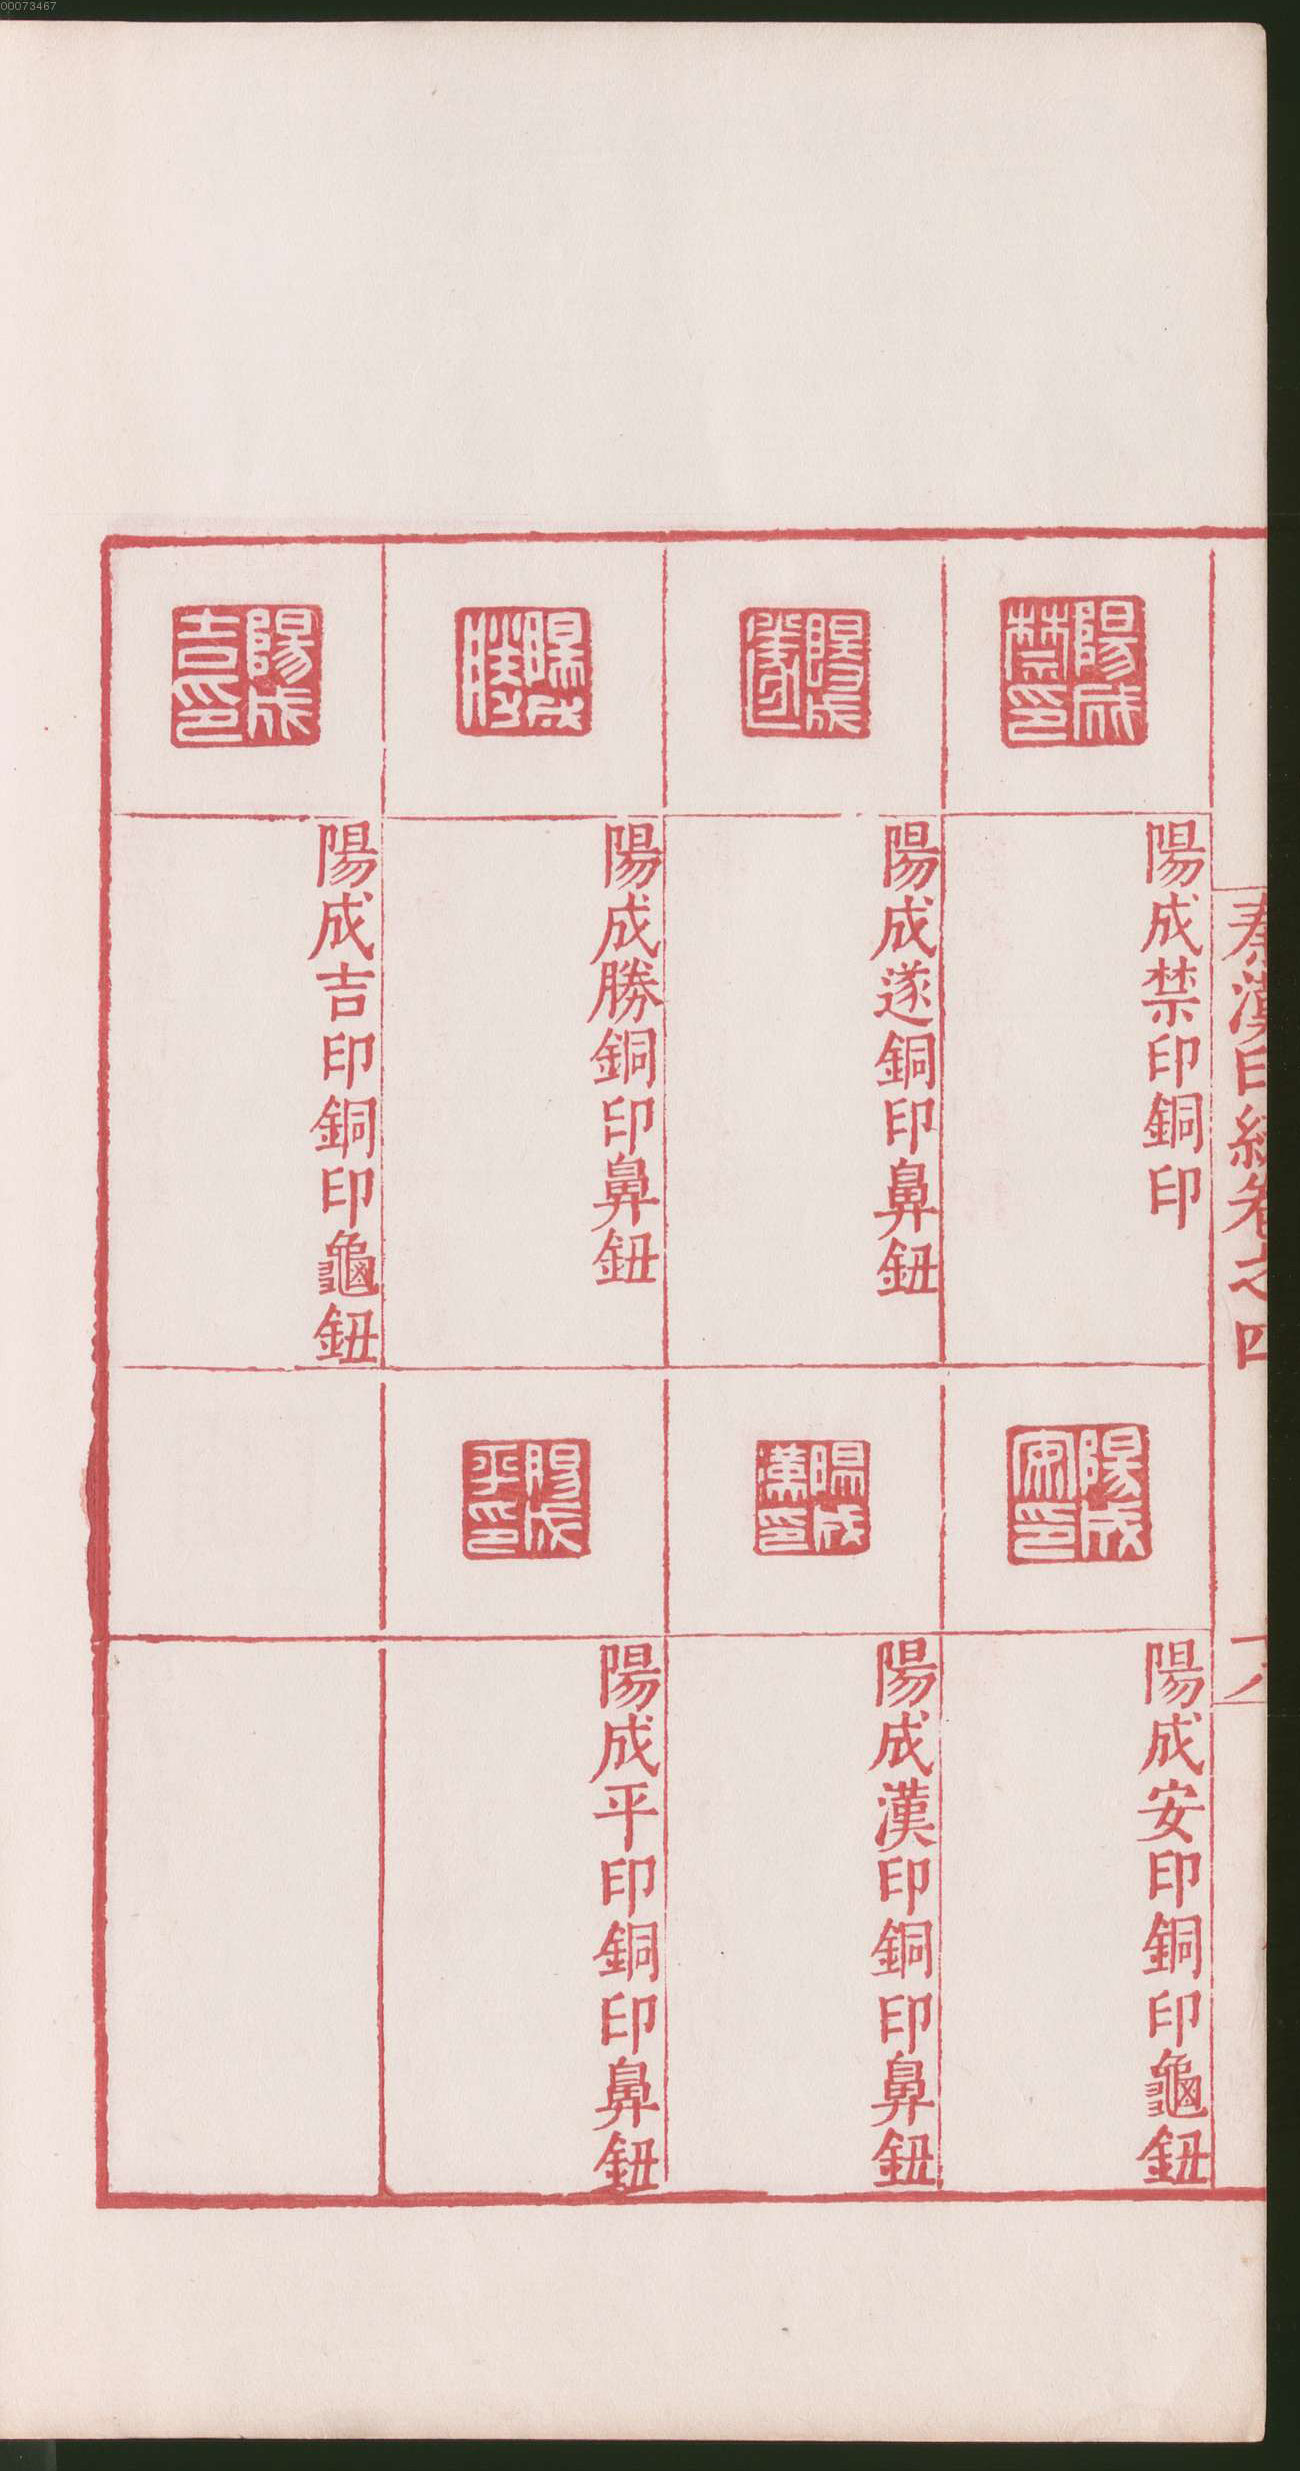 00073467
秦漢印統卷之四
陽成禁印
陽成禁印銅印
陽成遂
陽成遂銅印鼻鈕
陽成勝
陽成勝銅印鼻鈕
陽成吉印
陽成吉印銅印龜鈕
陽成安印
陽成安印銅印龜鈕
陽成漢印
陽成漢印銅印鼻鈕
陽成平印
陽成平印銅印鼻鈕